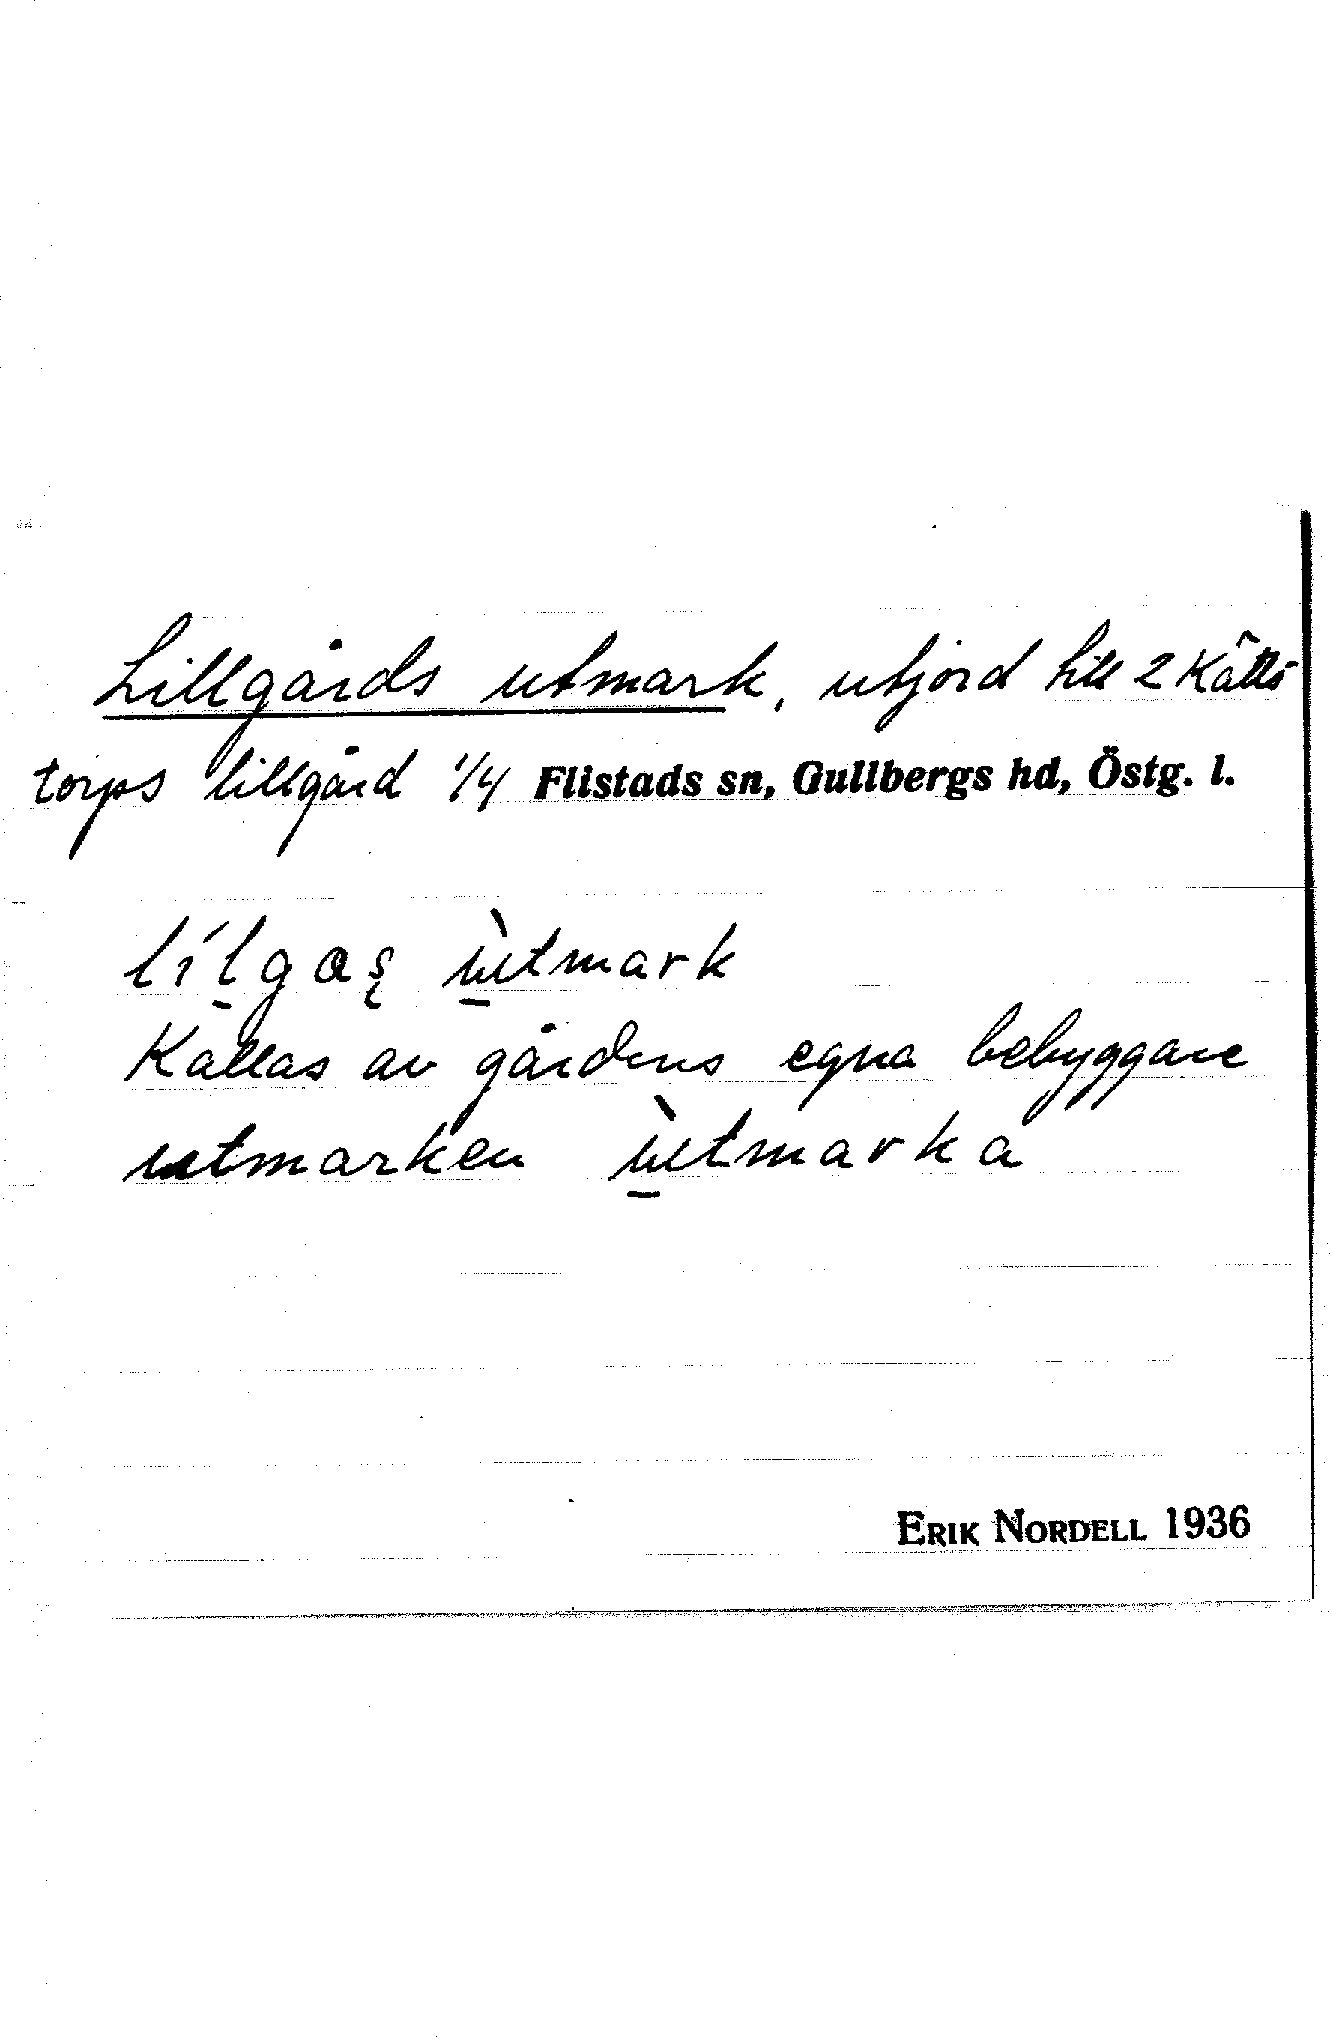 Lillgårds utmark, utjord till 2 Kätts
torps lillgård 1/4 Flistads sn, Gullbergs hd, Östg. l.
lílgaʂ ùtmark
Kallas av gårdens egna bebyggare
utmarken ùtmarka
ERIK NORDELL 1936